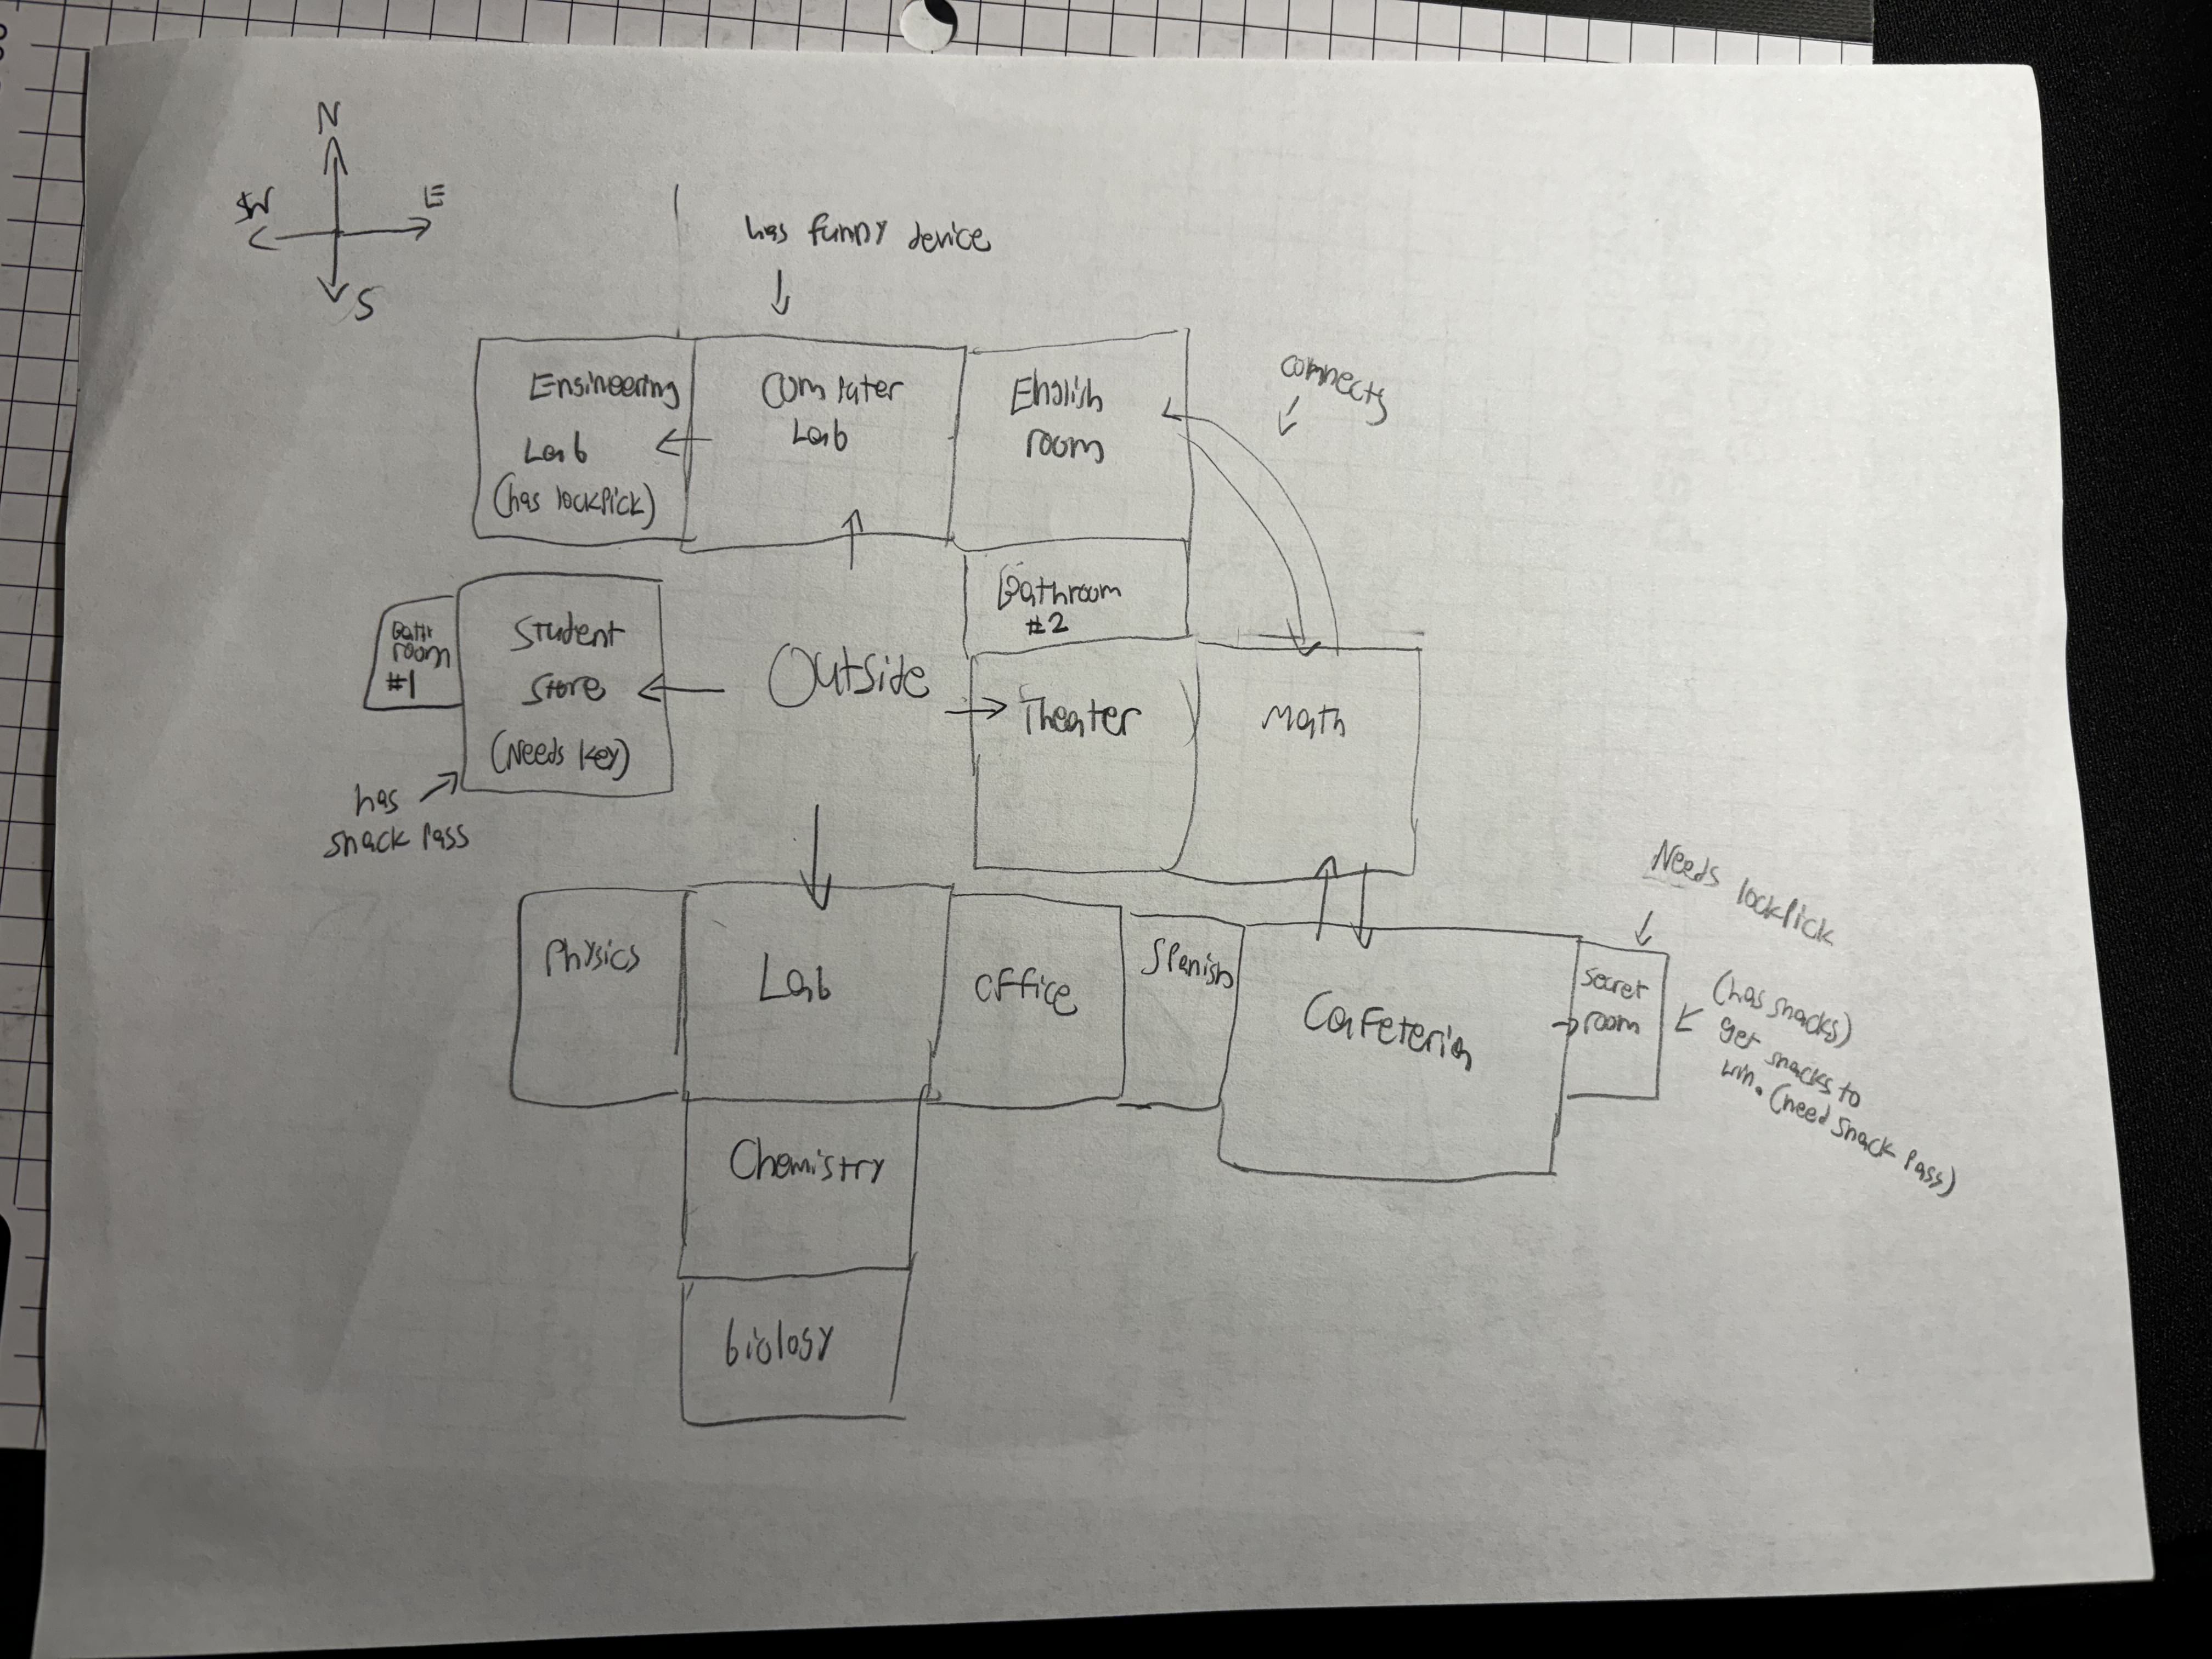 N
W
E
S
has funny device
Engineering
Lab
(has lockpick)
Computer
Lab
English
room
connects
Bathroom
#2
Bath
room
#1
Student
Store
(Needs key)
Outside
Theater
Math
has
snack pass
Physics
Lab
office
Spanish
Cafeteria
secret
room
Needs lockpick
(has snacks)
get snacks to
win. (need snack pass)
Chemistry
biology